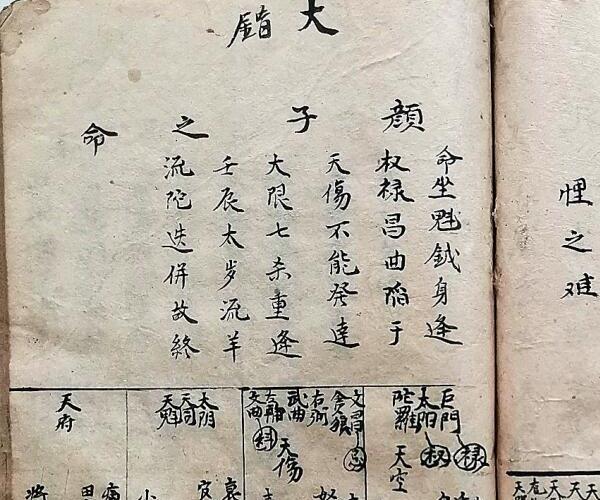 悝之难
大錯
顔子之命
命坐魁鉞身逢
权禄昌曲陷于
天傷不能発達
大限七杀重逢
壬辰太岁流羊
流陀迭併故終
巨門禄
太阳权
陀羅
天空
文昌忌
貪狼
右弼
武曲
左輔
文曲科
天傷
太阴
天同
天魁
天府